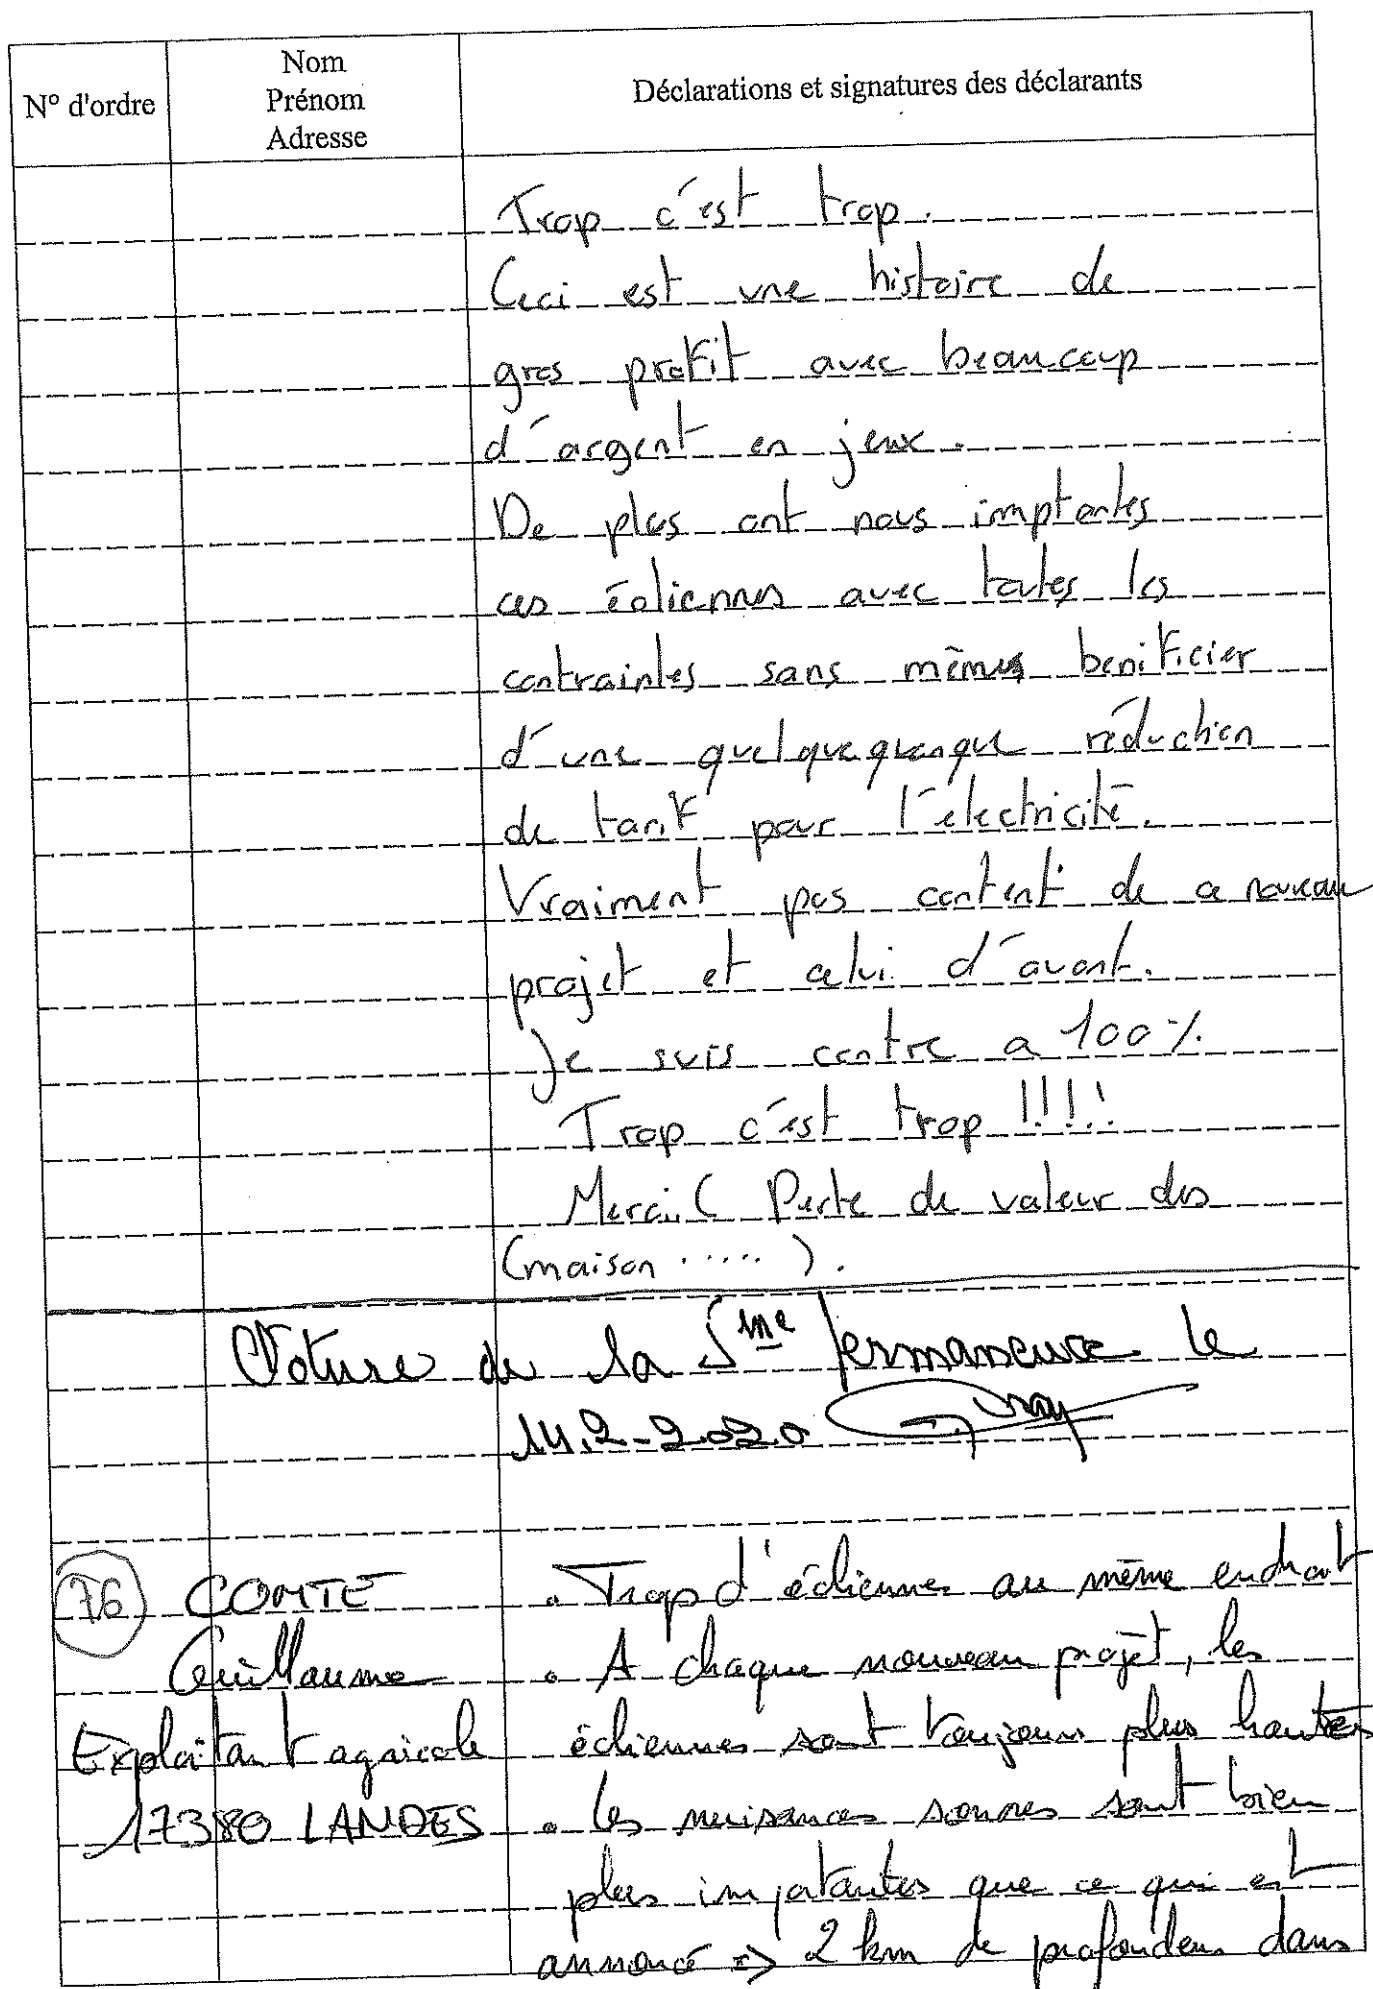 N° d'ordre
Nom
Prénom
Adresse
Déclarations et signatures des déclarants
Trop c'est trop.
Ceci est une histoire de
gros profit avec beaucoup
d'argent en jeux.
De plus ont nous implantes
ces éoliennes avec toutes les
contraintes sans mêmes benificier
d'une quelquequonque réduction
de tarif pour l'électricité.
Vraiment pas content de ce nouveau
projet et celui d'avant.
Je suis contre a 100%
Trop c'est trop !!!!
Merci. ( Perte de valeur des
(maison ..... ).
Cloture de la 5me permanence le
14.2-2020
76 COMTE
Guillaume
Exploitant agricole
17380 LANDES
. Trop d'éoliennes au même endroit
. A chaque nouveau projet, les
éoliennes sont toujours plus hautes
. les nuisances sonores sont bien
plus importantes que ce qui est
annoncé => 2 km de profondeur dans